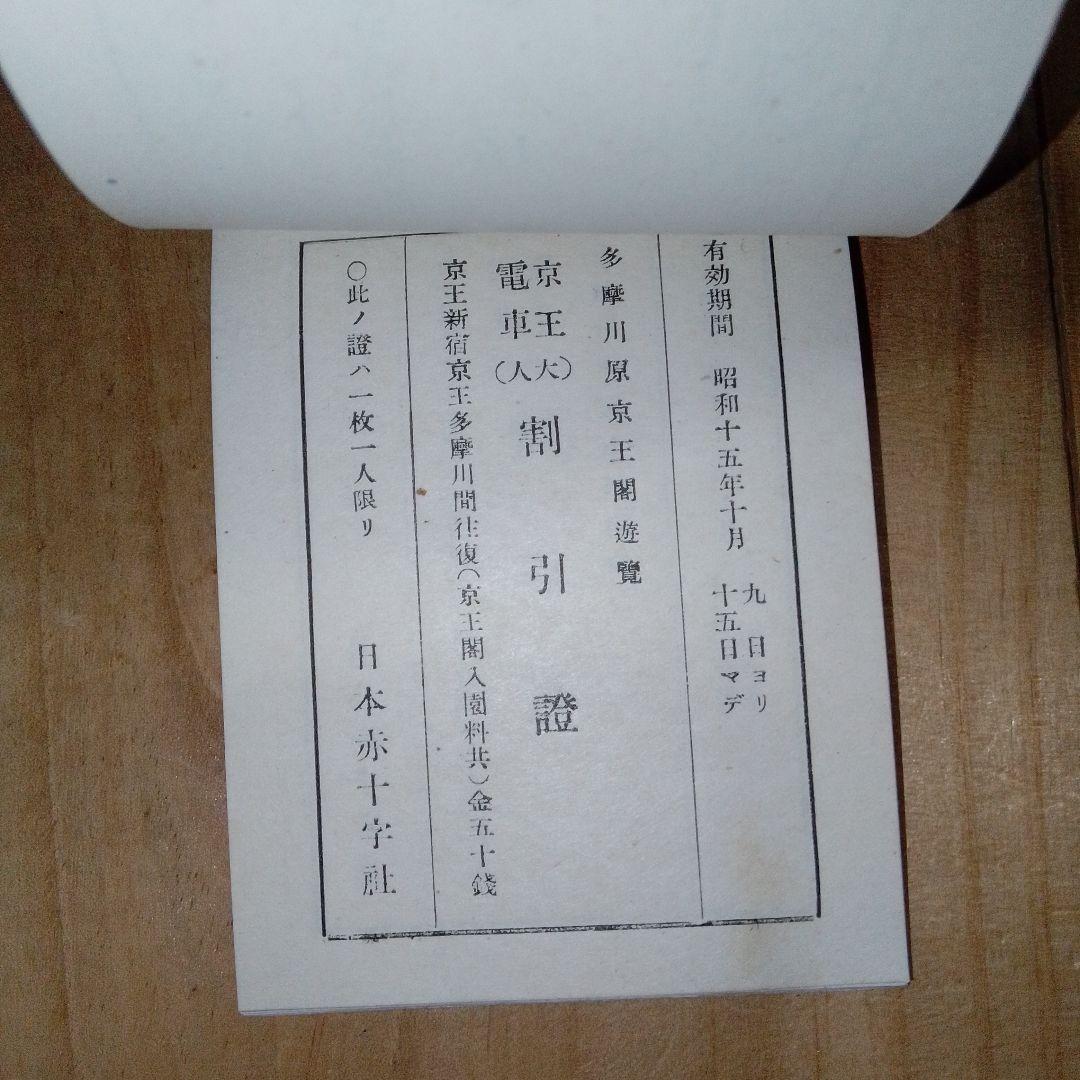 有効期間　昭和十五年十月　九日ヨリ
十五日マデ
多摩川原京王閣遊覽
京王電車(大人)割引證
京王新宿京王多摩川間往復(京王閣入園料共)金五十錢
○此ノ證ハ一枚一人限リ　日本赤十字社